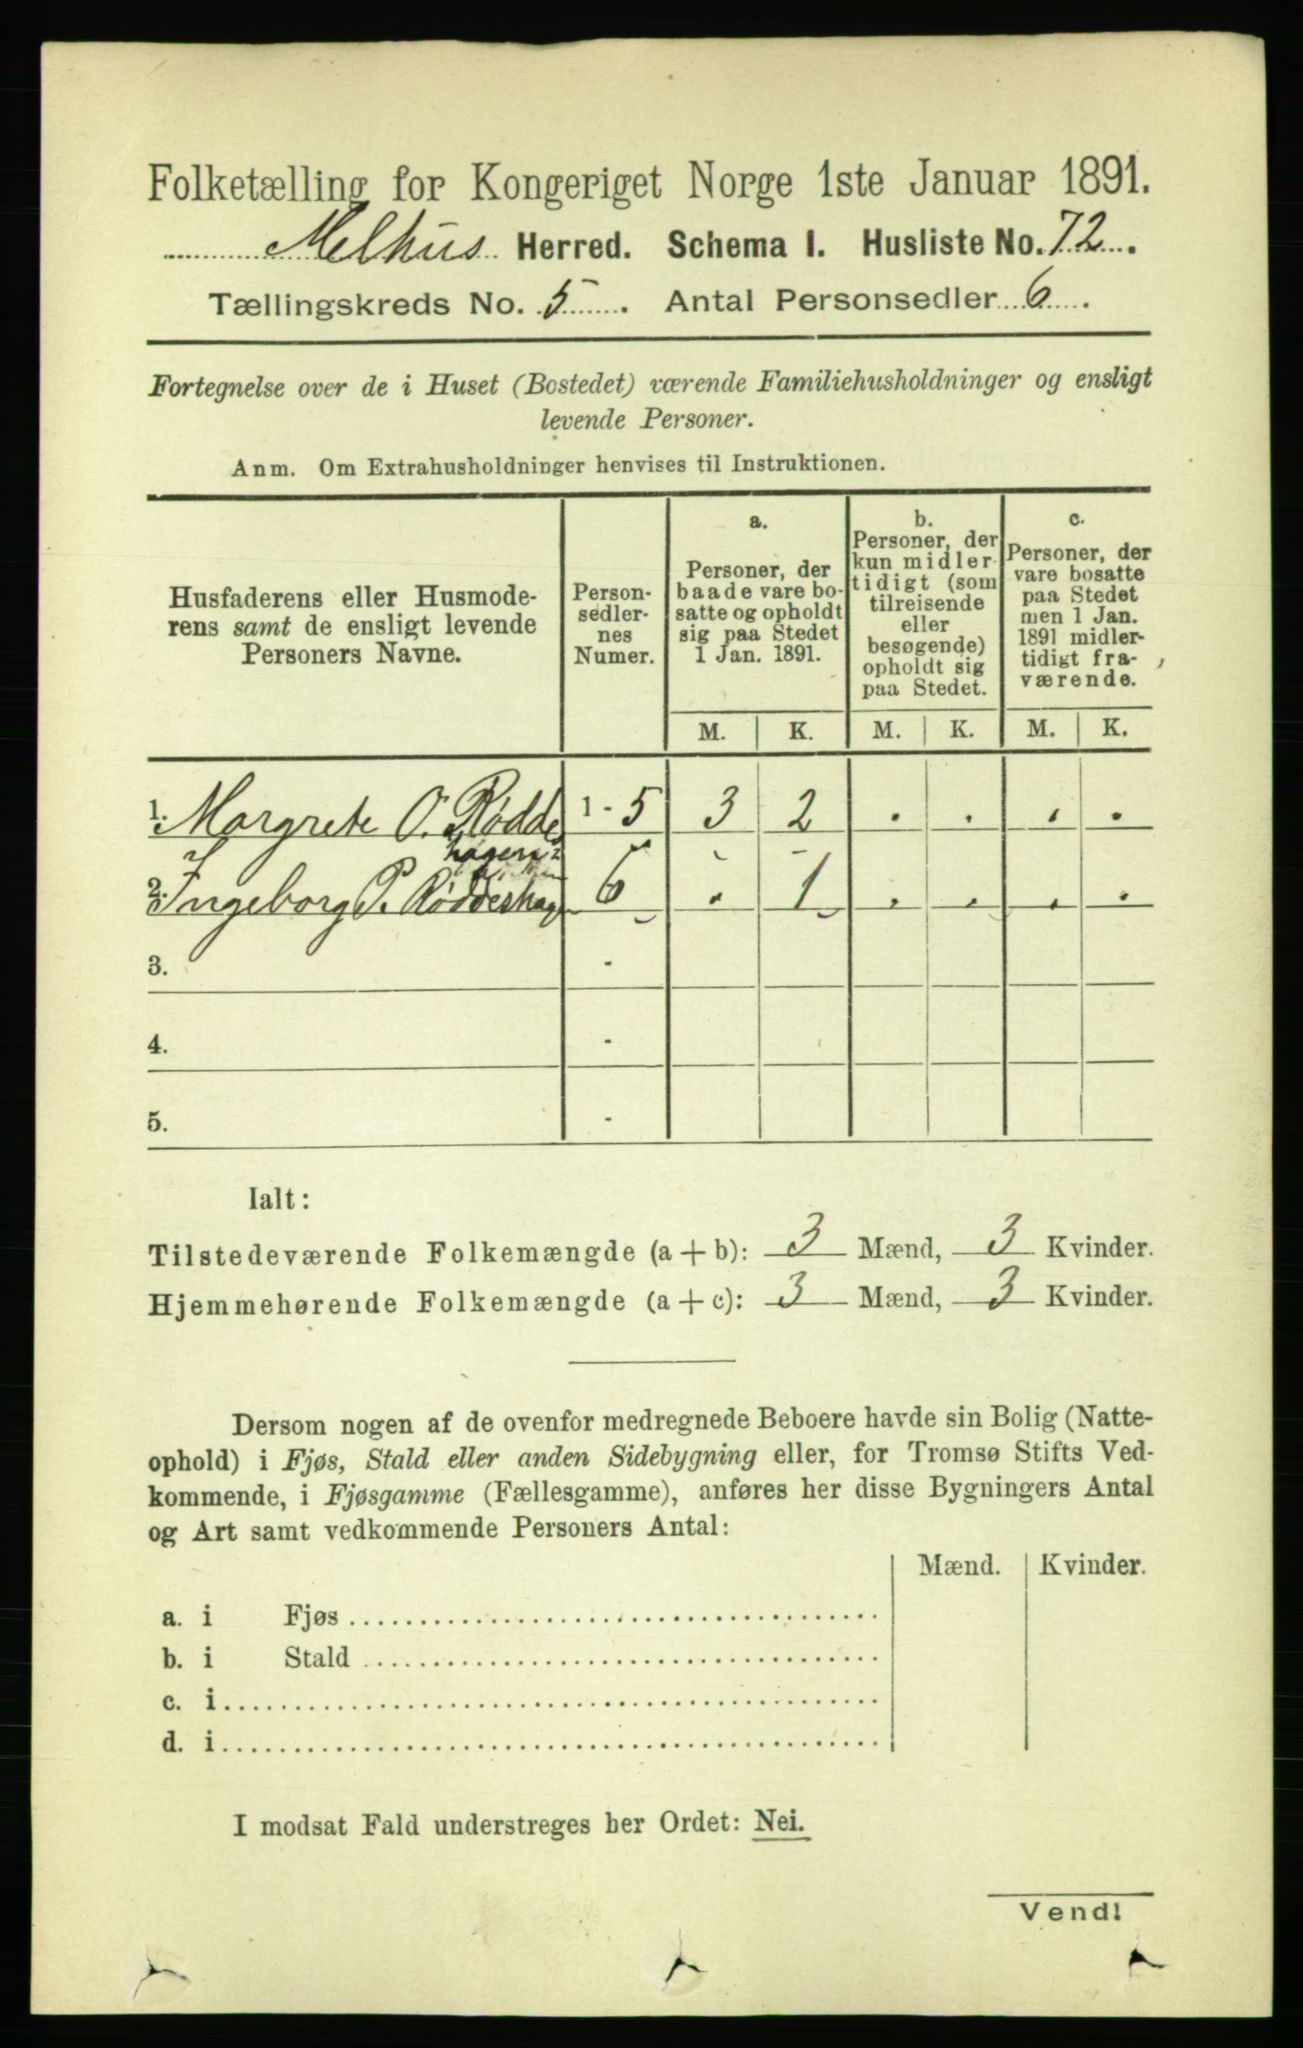 Folketælling for Kongeriget Norge 1ste Januar 1891.
Melhus Herred. Schema I. Husliste No. 72.
Tællingskreds No. 5. Antal Personsedler 6.
Fortegnelse over de i Huset (Bostedet) værende Familiehusholdninger og ensligt
levende Personer.
Anm. Om Extrahusholdninger henvises til Instruktionen.
Husfaderens eller Husmode-
rens samt de ensligt levende
Personers Navne.
Person-
sedler-
nes
Numer.
a.
Personer, der
baade vare bo-
satte og opholdt
sig paa Stedet
1 Jan. 1891.
b.
Personer, der
kun midler-
tidigt (som
tilreisende
eller
besøgende)
opholdt sig
paa Stedet.
c.
Personer, der
vare bosatte
paa Stedet
men 1 Jan.
1891 midler-
tidigt fra-
værende.
M. K. M. K. M. K.
1. Margrete O. Rødde 1 - 5 3 2 . . . .
hagen
2. Ingeborg P. Røddeshag 6 . 1 . . . .
3. -
4. -
5. -
Ialt:
Tilstedeværende Folkemængde (a + b): 3 Mænd, 3 Kvinder.
Hjemmehørende Folkemængde (a + c): 3 Mænd, 3 Kvinder.
Dersom nogen af de ovenfor medregnede Beboere havde sin Bolig (Natte-
ophold) i Fjøs, Stald eller anden Sidebygning eller, for Tromsø Stifts Ved-
kommende, i Fjøsgamme (Fællesgamme), anføres her disse Bygningers Antal
og Art samt vedkommende Personers Antal:
Mænd. Kvinder.
a. i Fjøs
b. i Stald
c. i
d. i
I modsat Fald understreges her Ordet: Nei.
Vend!